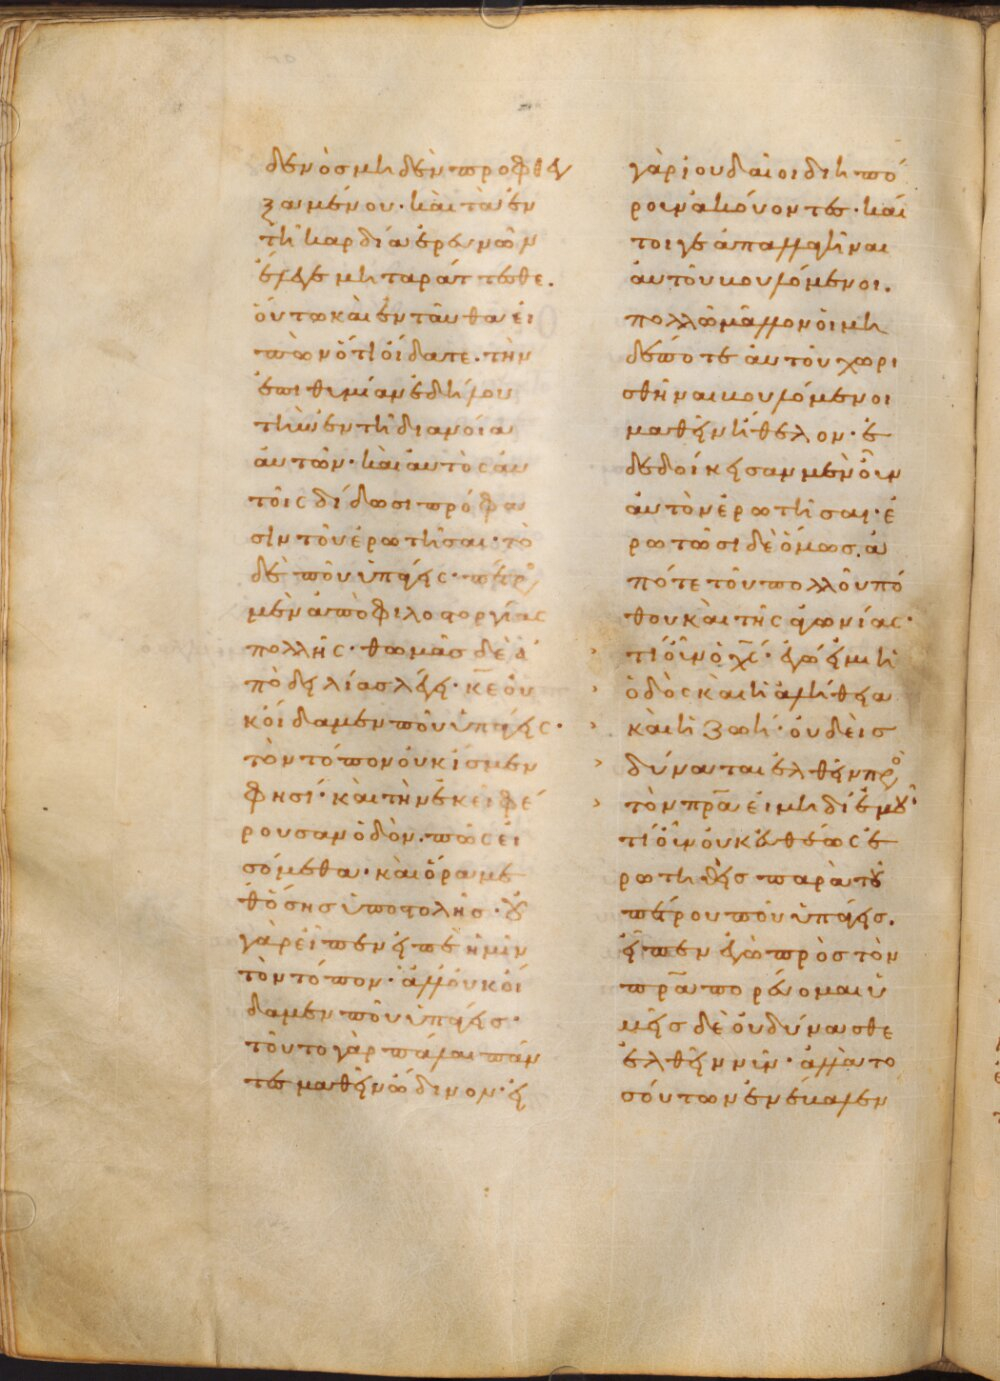 δενὸσ μὴ δὲν προφθεγ
ξαμένου· καὶ τὰ ἐν
τῆ καρδία ἐρευνῶν
ἔλεγε μὴ ταράττεσθε.
οὕτω καὶ ἐνταῦθα εἰ
πὼν ὅτι οἴδατε. τὴν
ἐπιθυμίαν ἐδήλου
τὴν ἐν τῆ διανοία
αὐτῶν· καὶ αὐτὸς αὐ
τοῖς δίδωσι πρόφα
σιν τοῦ ἐρωτῆσαι· τὸ
δὲ ποῦ ὑπάγεις· πέτρος
μὲν ἀπὸ φιλοστοργίας
πολλῆς· θωμᾶσ δὲ ἀ
πὸ δειλίασ λέγει· κε οὐ
κ οἴδαμεν ποῦ ὑπάγεις·
τὸν τόπον οὐκ ἴσμεν
φησί· καὶ τὴν ἐκεῖ φέ
ρουσαν ὁδὸν. πῶς εἰ
σόμεθα· καὶ ὅρα με
θ' ὅσησ ὑποστολῆσ· οὐ
γὰρ εἶπεν εἰπὲ ἡμῖν
τὸν τόπον· ἀλλ' οὐκ οἴ
δαμεν ποῦ ὑπάγεισ·
τοῦτο γὰρ πάλαι πάν
τεσ μαθεῖν ὤδινον· εἰ
γὰρ ἰουδαῖοι διηπό
ρουν ἀκούοντεσ· καί
τοιγε ἀπαλλαγῆναι
αὐτοῦ βουλόμενοι.
πολλῶ μᾶλλον οἱ μη
δέποτε αὐτοῦ χωρι
σθῆναι βουλόμενοι
μαθεῖν ἤθελον· ἐ
δεδοίκεισαν μὲν οὖν
αὐτὸν ἐρωτῆσαι· ἐ
ρωτῶσι δὲ ὅμωσ. ἀ
πό τε τοῦ πολλοῦ πό
θου καὶ τῆς ἀγωνίας·
τί οὖν ὁ χς· ἐγώ εἰμι ἡ
ὁδὸς καὶ ἡ ἀλήθεια
καὶ ἡ ζωή· οὐδεὶσ
δύναται ἐλθεῖν πρὸς
τὸν πρα εἰ μὴ δι' ἐμοῦ·
τί οὖν οὐκ εὐθέως ἐ
ρωτηθεὶσ παρὰ τοῦ
πέτρου ποῦ ὑπάγεισ.
εἶπεν ἐγὼ πρὸσ τὸν
πρα πορεύομαι ὑ
μεῖσ δὲ οὐ δύνασθε
ἐλθεῖν νῦν· ἀλλὰ το
σούτων ἐνέβαλεν